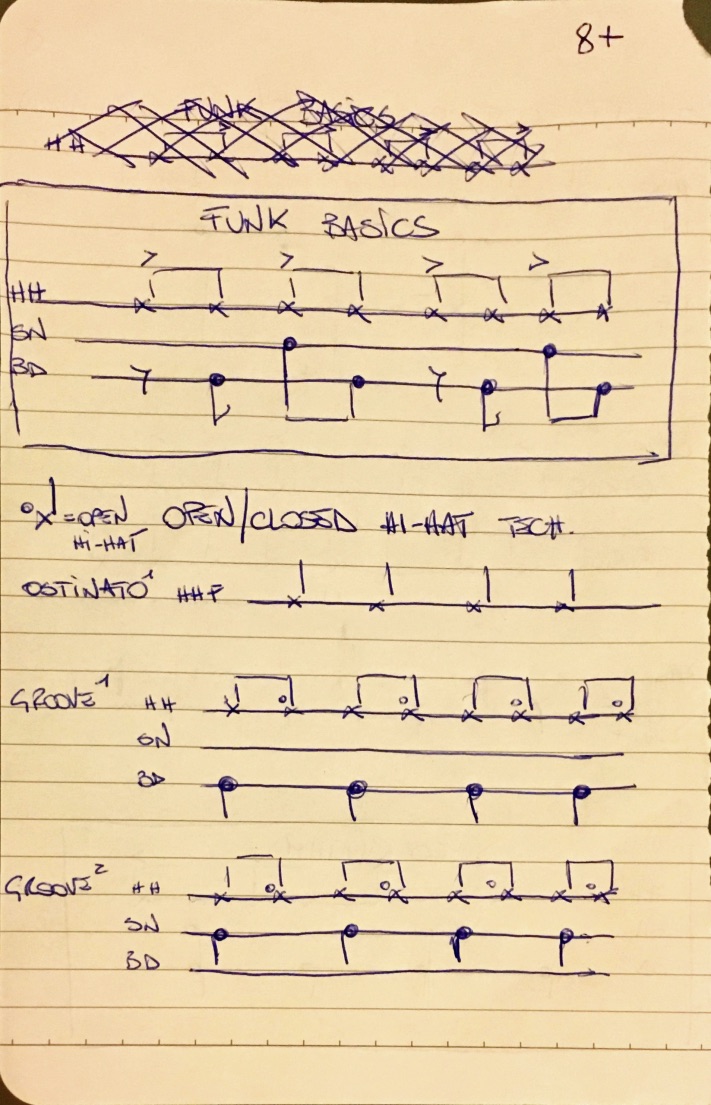 8+
FUNK BASICS
HH
FUNK BASICS
HH
SN
BD
°x = OPEN HI-HAT OPEN/CLOSED HI-HAT TECH.
OSTINATO¹ HHF
GROOVE¹ HH
SN
BD
GROOVE² HH
SN
BD